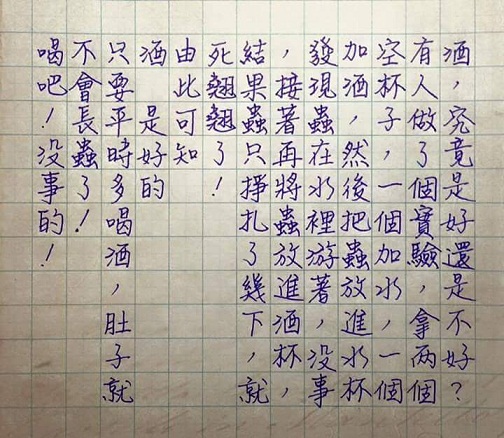 酒，究竟是好還是不好？
有人做了個實驗，拿两個
空杯子，一個加水，一個
加酒，然後把蟲放進水杯
發現蟲在水裡游著，没事
，接著再將蟲放進酒杯，
結果蟲只掙扎了幾下，就
死翹翹了！
由此可知
酒是好的
只要平時多喝酒，肚子就
不會長蟲了！
喝吧！没事的！